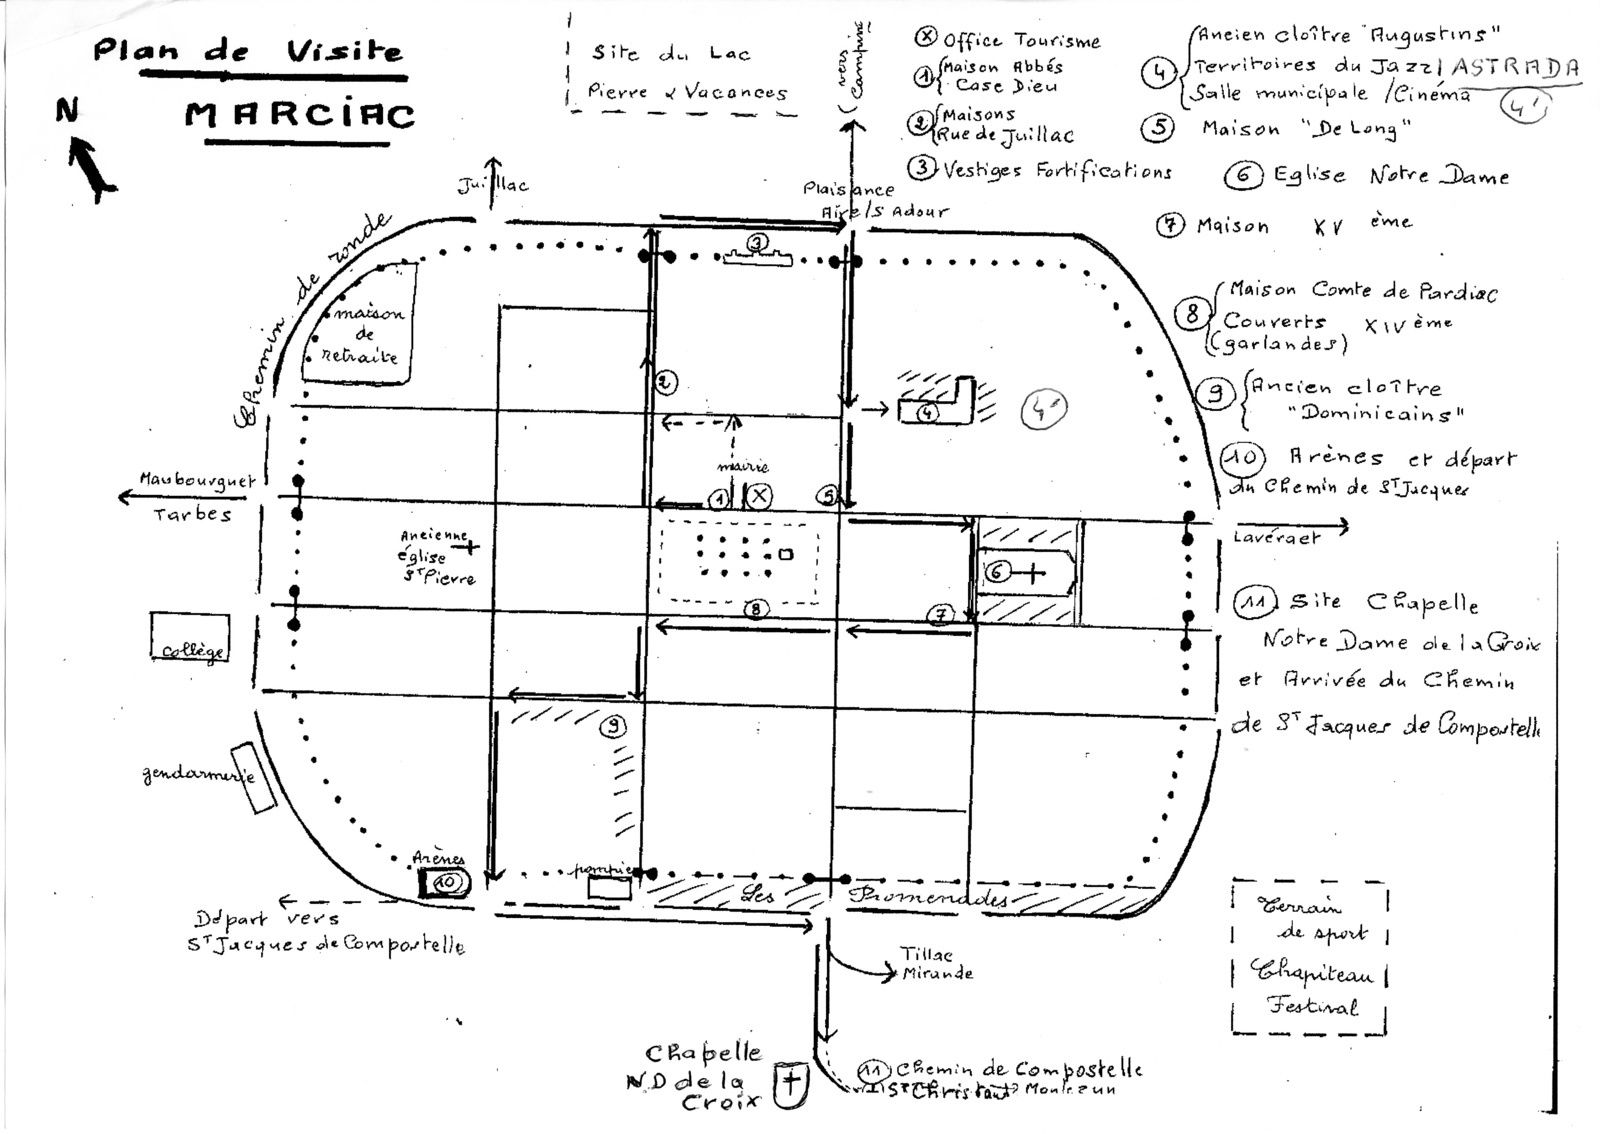 Plan de Visite
MARCIAC
N
Site du Lac
Pierre & Vacances
vers
Camping
Ⓧ Office Tourisme
① Maison Abbés
Case Dieu
② Maisons
Rue de Juillac
③ Vestiges Fortifications
④ Ancien cloître "Augustins"
Territoires du Jazz / ASTRADA
Salle municipale / Cinéma
4'
⑤ Maison "De Long"
⑥ Eglise Notre Dame
⑦ Maison XV ème
⑧ Maison Comte de Pardiac
Couverts XIV ème
(garlandes)
⑨ Ancien cloître
"Dominicains"
⑩ Arènes et départ
du Chemin de St Jacques
⑪ Site Chapelle
Notre Dame de la Croix
et Arrivée du Chemin
de St Jacques de Compostelle
Juillac
Plaisance
Aire/s Adour
Chemin de ronde
maison
de
retraite
③
②
④
4'
mairie
① Ⓧ
⑤
Maubourguet
Tarbes
Lavéraet
Ancienne
église
St Pierre
⑥
⑧
⑦
Collège
⑨
gendarmerie
Arènes
⑩
pompier
Les Promenades
Départ vers
St Jacques de Compostelle
Tillac
Mirande
Terrain
de sport
Chapiteau
Festival
Chapelle
ND de la
Croix
⑪ Chemin de Compostelle
St Christaud Monlezun